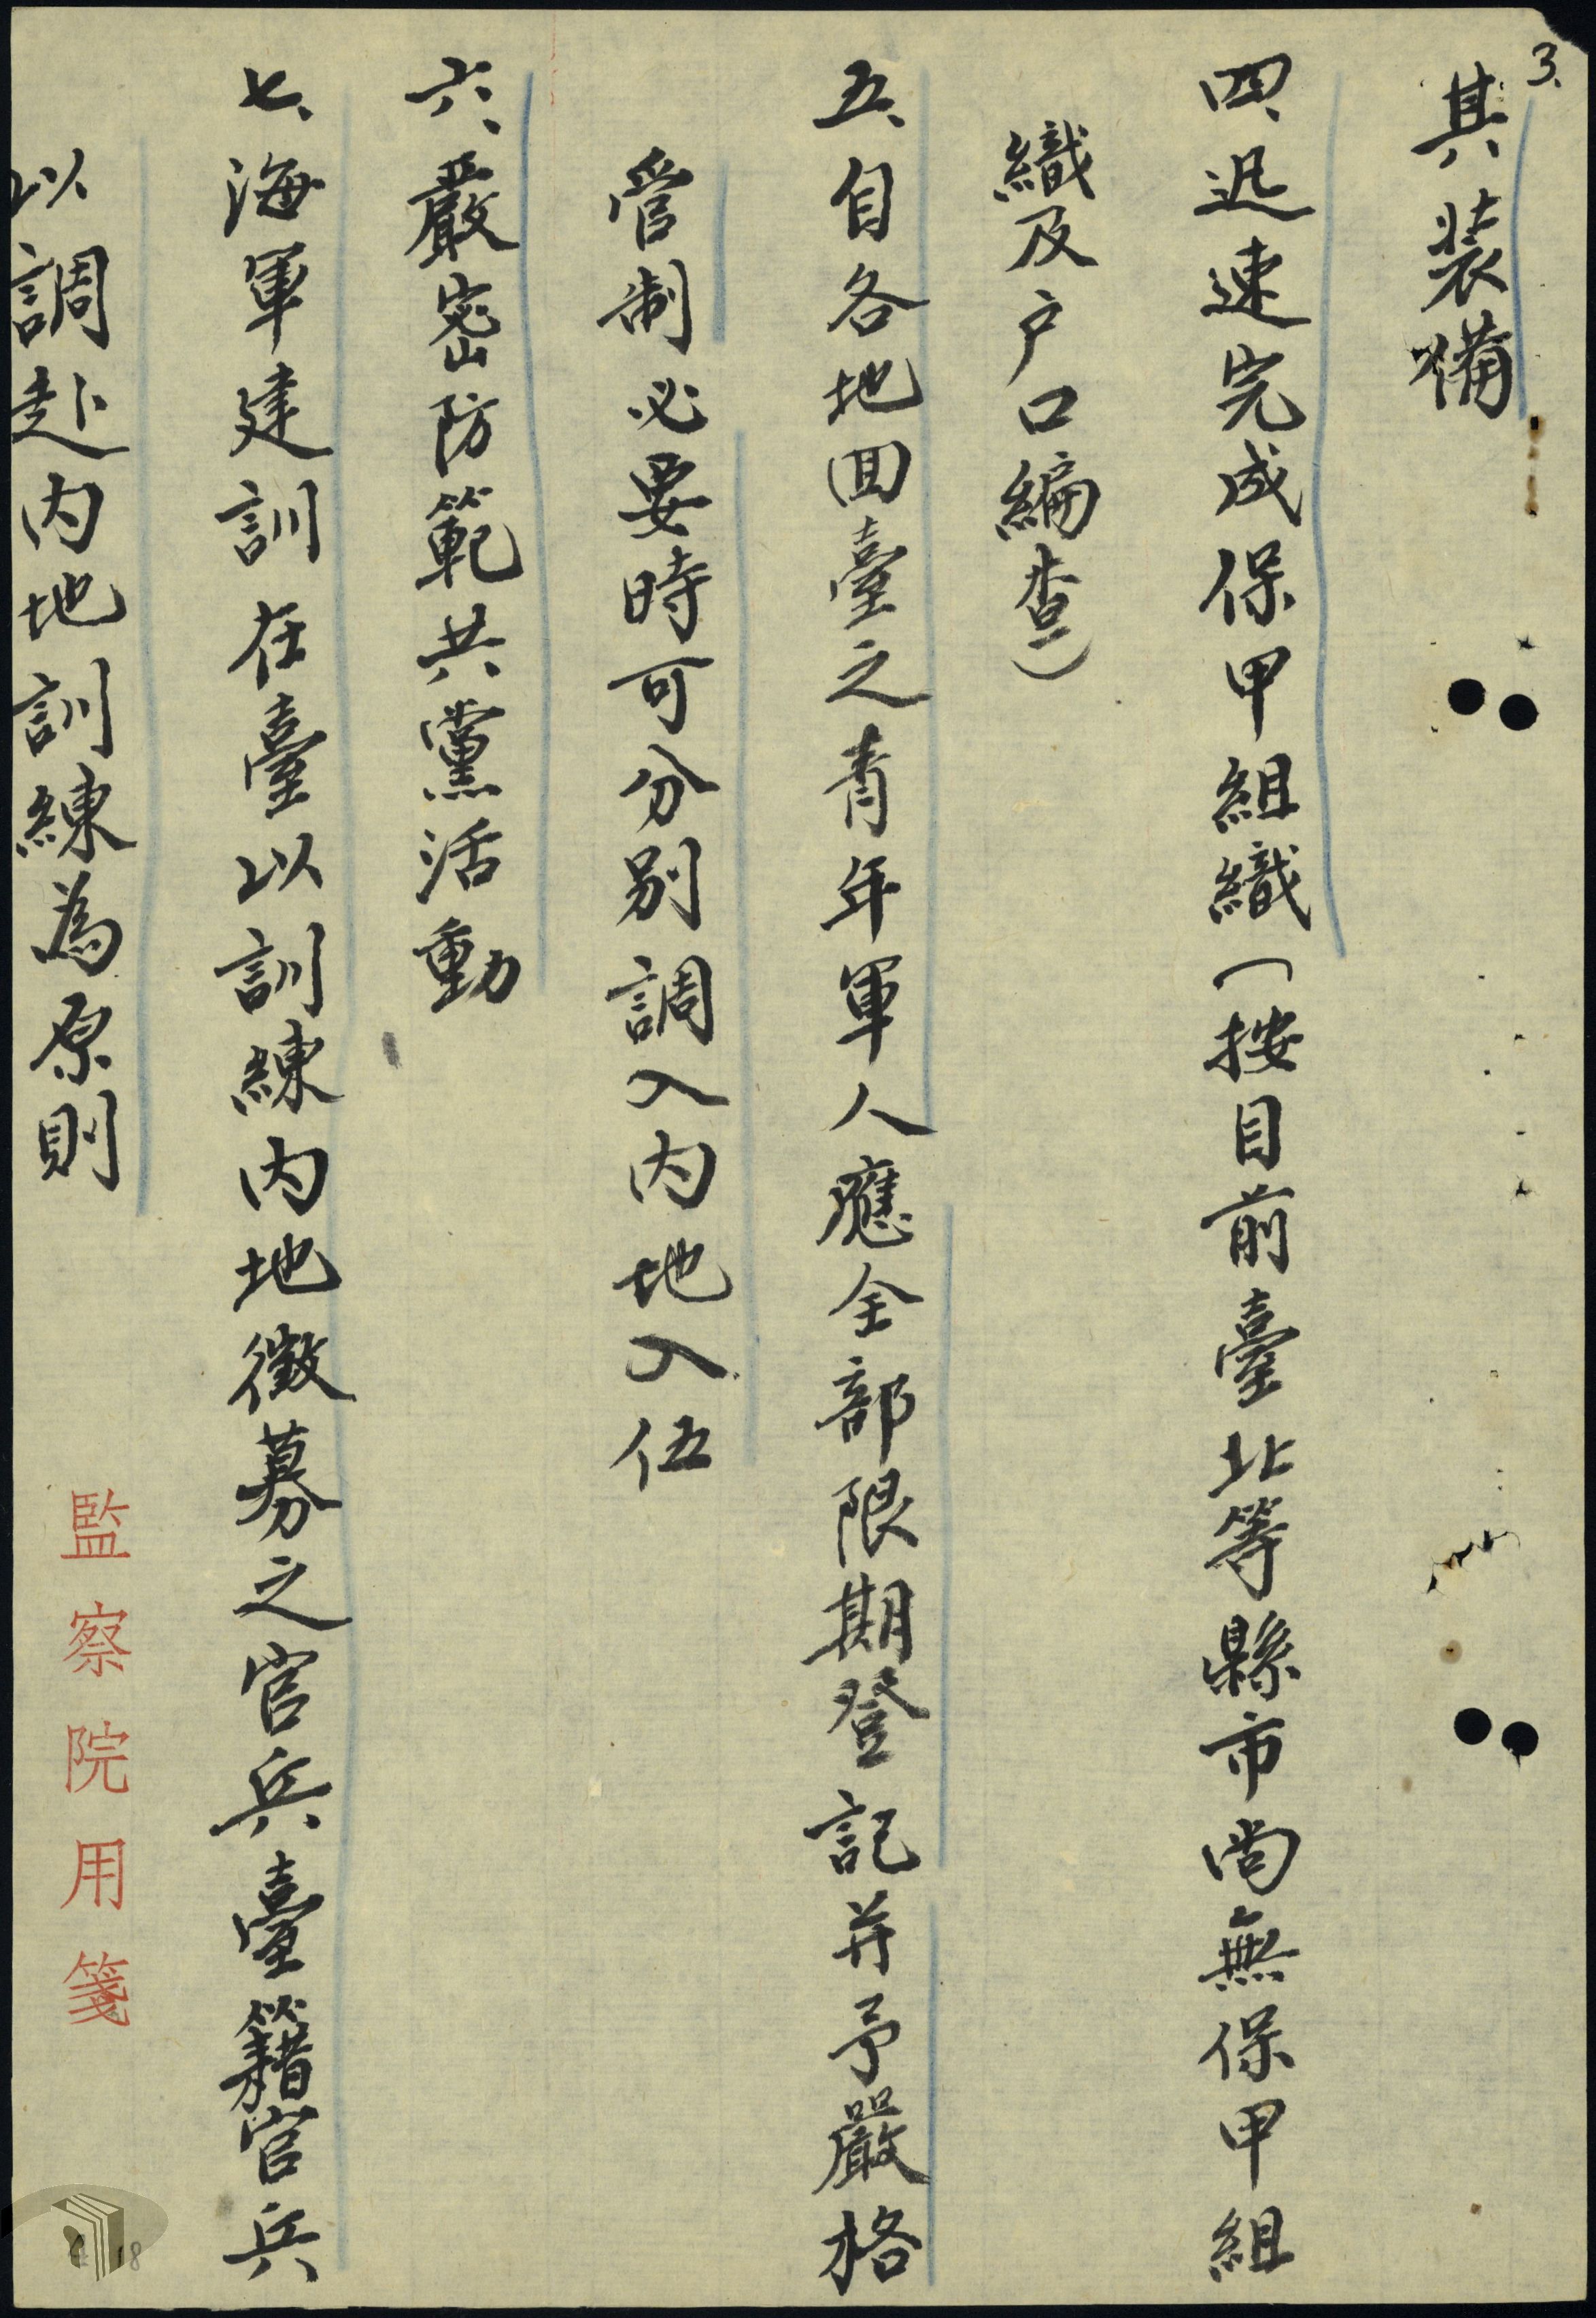 3.
其裝備
四、迅速完成保甲組織（按目前臺北等縣市尚無保甲組
織及户口編查）
五、自各地回臺之青年軍人應全部限期登記并予嚴格
管制必要時可分別調入内地入伍
六、嚴密防範共黨活動
七、海軍建訓在臺以訓練内地徵募之官兵臺籍官兵
以調赴内地訓練為原則
監察院用箋